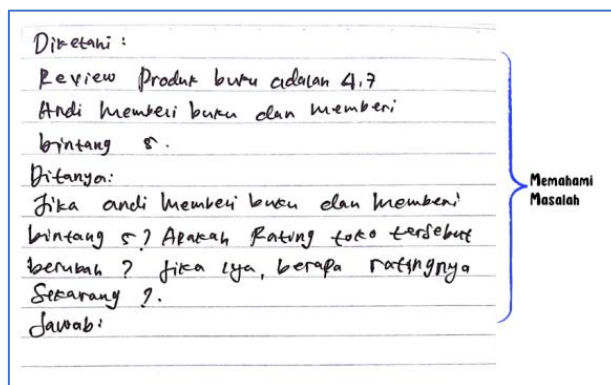 Diketahi :
Review Produk buku adalah 4,7
Andi membeli buku dan memberi
bintang 5.
Ditanya:
Jika andi membeli buku dan memberi
bintang 5? Apakah Rating toko tersebut
berubah? Jika iya, berapa ratingnya
Sekarang ?.
Jawab:
Memahami
Masalah